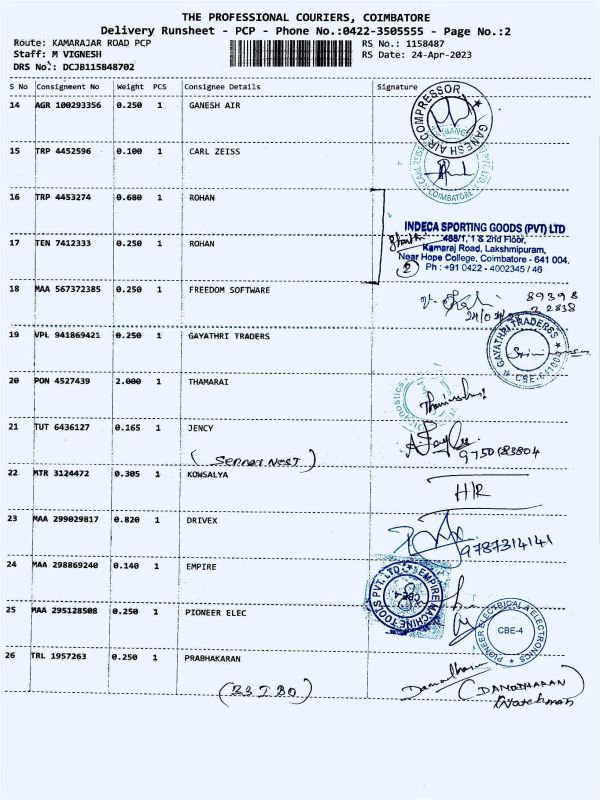 THE PROFESSIONAL COURIERS, COIMBATORE
Delivery Runsheet - PCP - Phone No.:0422-3505555 - Page No.:2
Route: KAMARAJAR ROAD PCP
RS No.: 1158487
Staff: M VIGNESH
RS Date: 24-Apr-2023
DRS No.: DCJB115848702
S No Consignment No Weight PCS Consignee Details Signature
14 AGR 100293356 0.250 1 GANESH AIR
GANESH AIR COMPRESSOR
15 TRP 4452596 0.100 1 CARL ZEISS
CARL ZEISS PVT. LTD
COIMBATORE
16 TRP 4453274 0.680 1 ROHAN
INDECA SPORTING GOODS (PVT) LTD
488/1, 1 & 2nd Floor,
17 TEN 7412333 0.250 1 ROHAN
Kamaraj Road, Lakshmipuram,
Near Hope College, Coimbatore - 641 004.
2 Ph : +91 0422 - 4002345 / 46
18 MAA 567372385 0.250 1 FREEDOM SOFTWARE
89398
22838
19 VPL 941869421 0.250 1 GAYATHRI TRADERS
GAYATHRI TRADERES
20 PON 4527439 2.000 1 THAMARAI
21 TUT 6436127 0.165 1 JENCY
9750183804
22 MTR 3124472 0.305 1 KOWSALYA
H/R
23 MAA 299029817 0.820 1 DRIVEX
9787314141
24 MAA 298869240 0.140 1 EMPIRE
EMPIRE MACHINE TOOLS PVT. LTD.
25 MAA 295128508 0.250 1 PIONEER ELEC
PIONEER ELECTRICAL & ELECTRONICS
CBE-4
26 TRL 1957263 0.250 1 PRABHAKARAN
(DAMODHARAN)